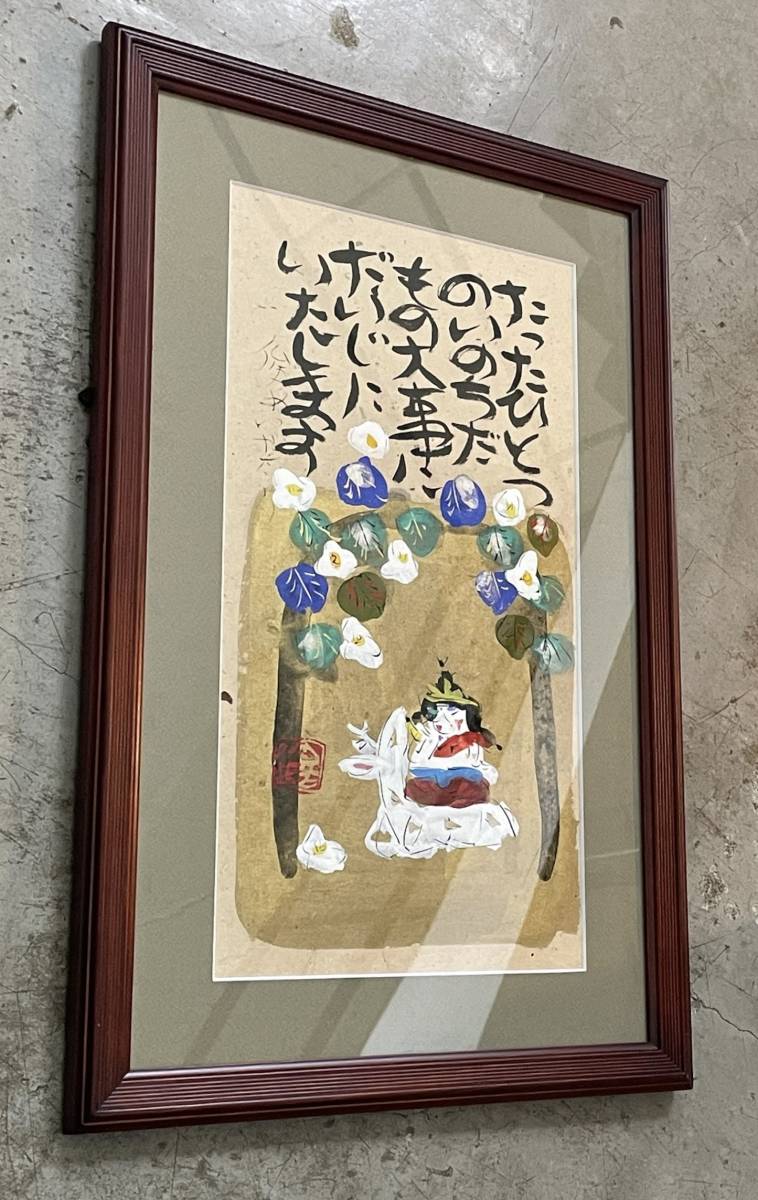 たったひとつ
のいのちだ
もの大事に
だいじに
いたします